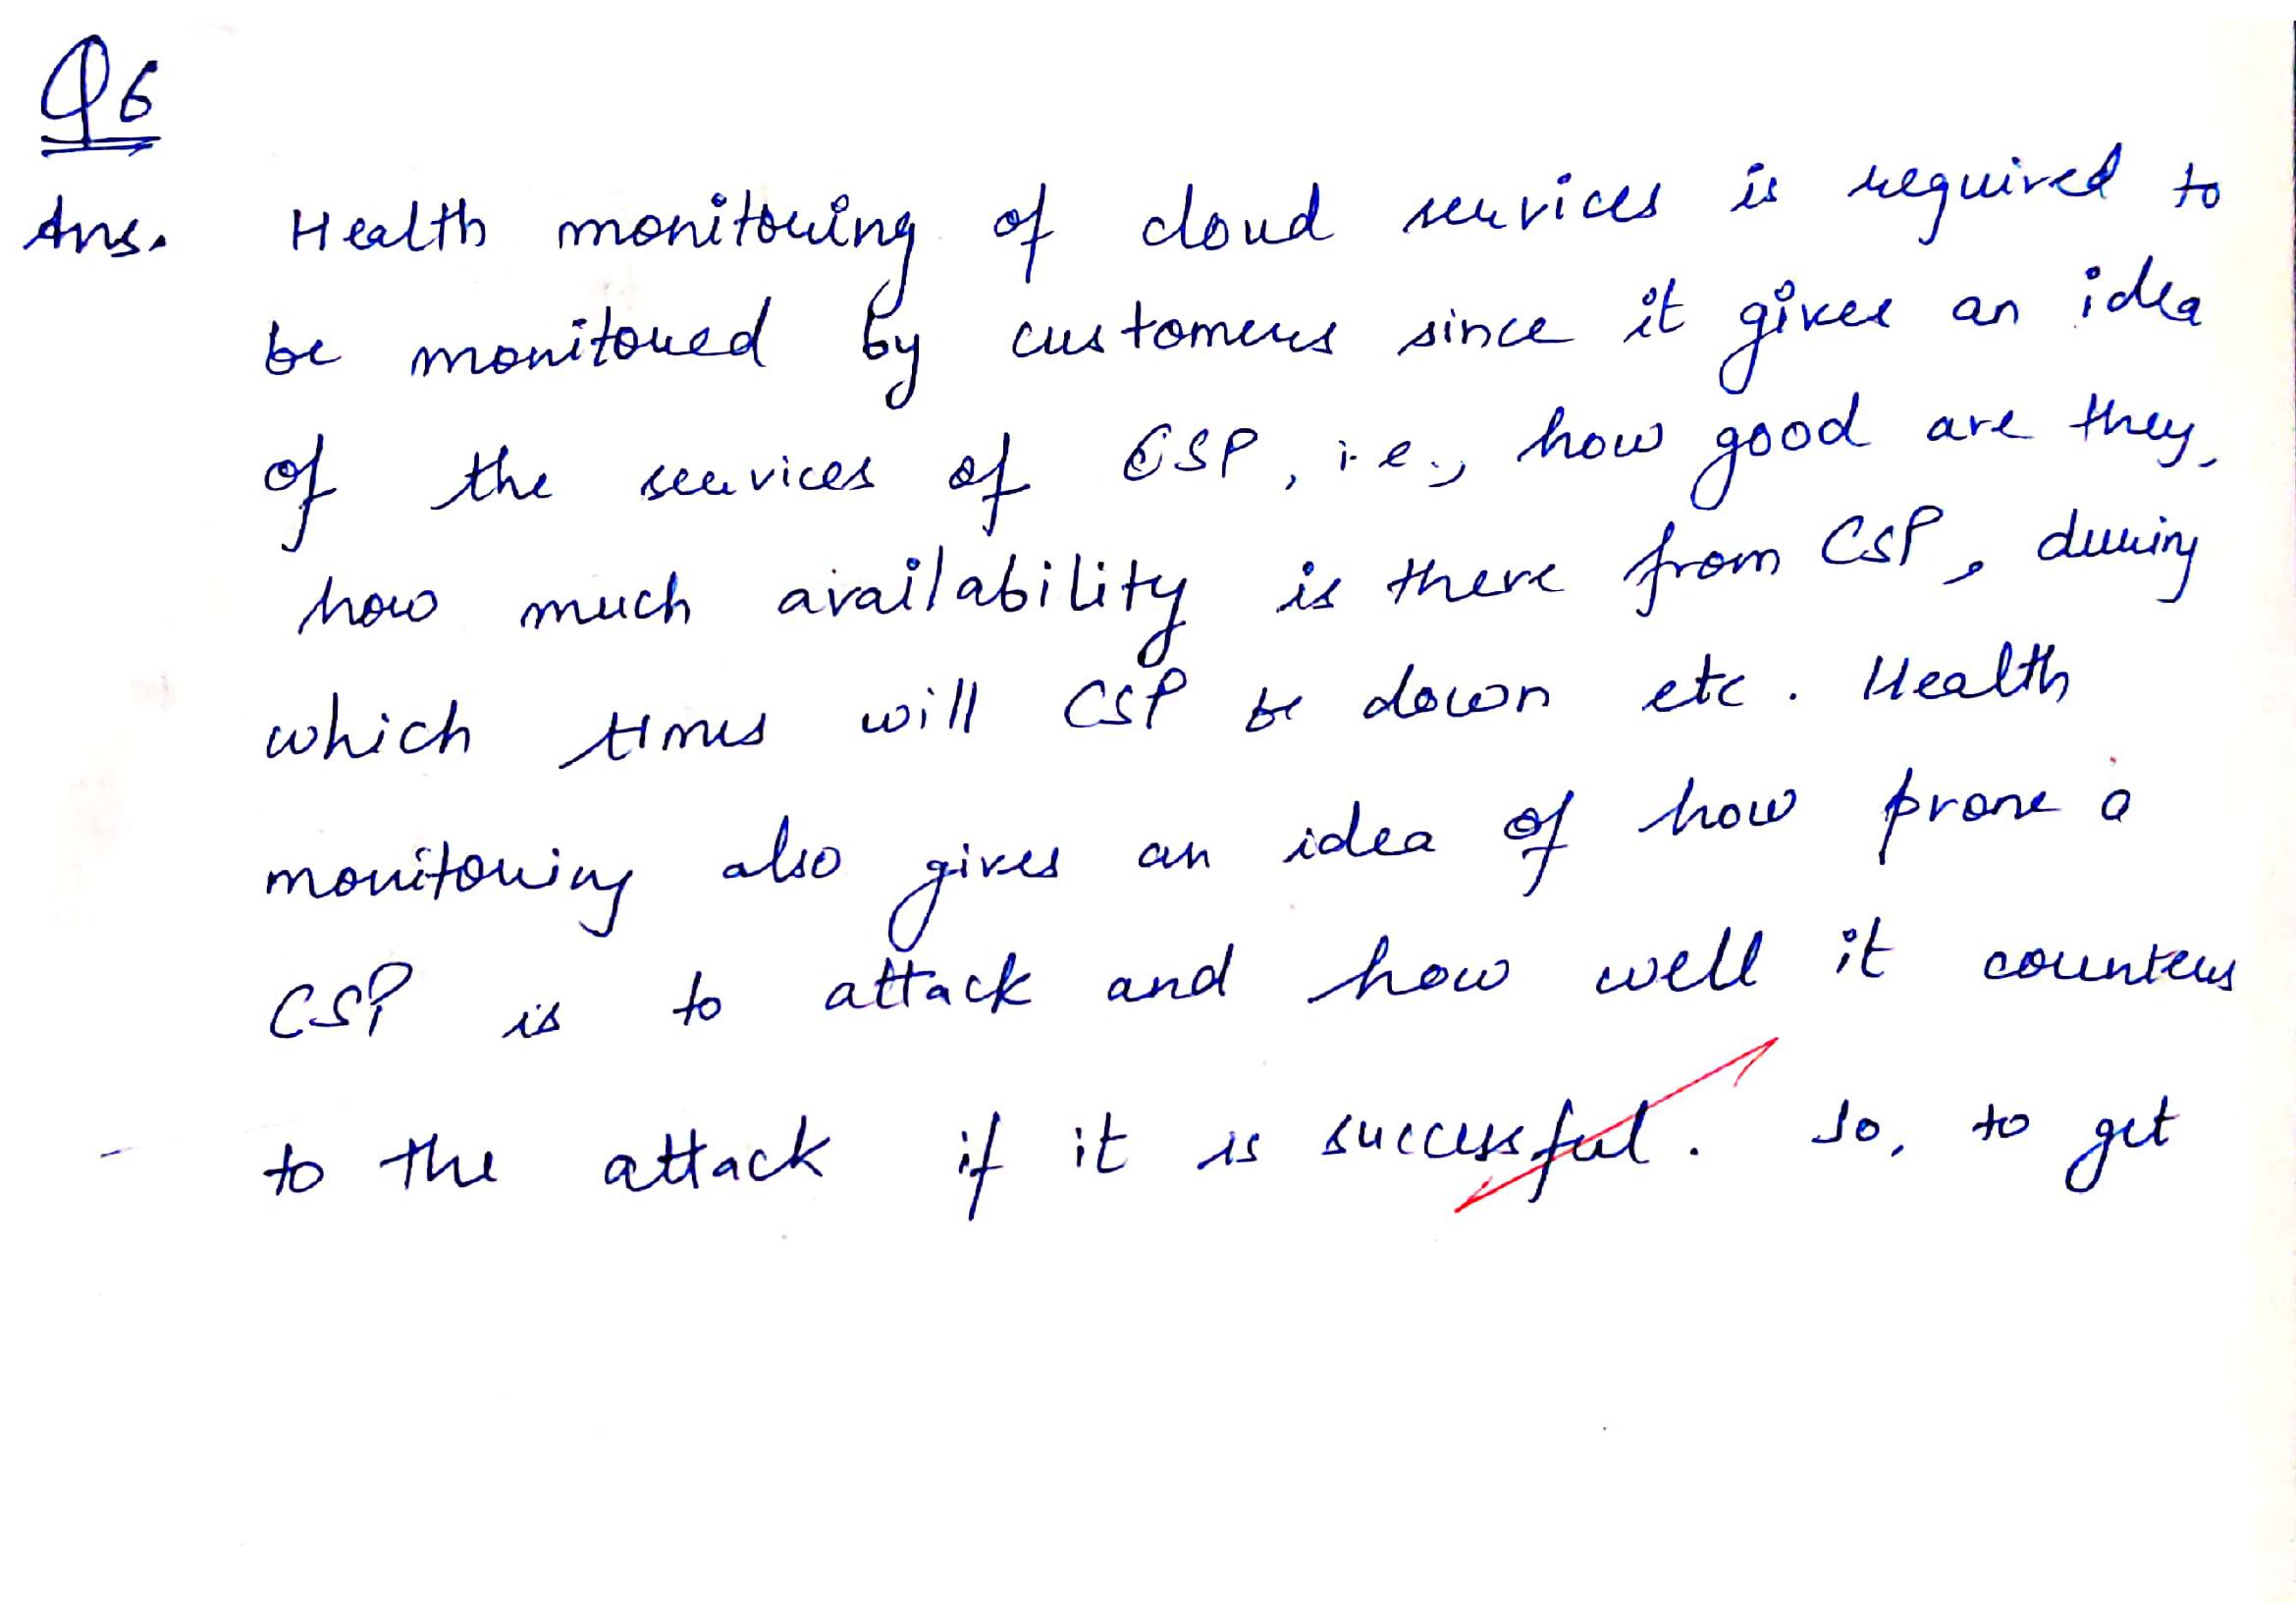 Q6
Ans. Health monitoring of cloud services is required to
be monitored by customers since it gives an idea
of the services of CSP, i.e., how good are they,
how much availability is there from CSP, during
which times will CSP be down etc. Health
monitoring also gives an idea of how prone a
CSP is to attack and how well it counters
to the attack if it is successful. So, to get